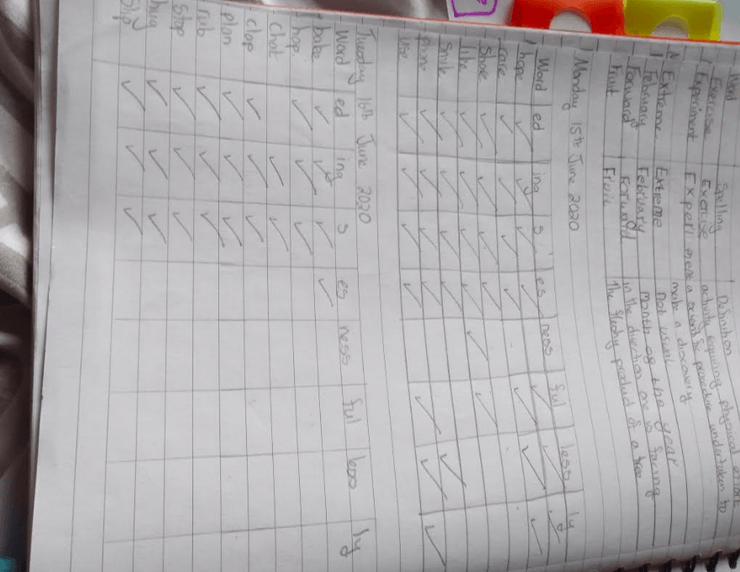 Word Spelling Definition
Exercise Exercise activity requiring physical effort
Experiment Experiment a procedure undertaken to
make a discovery
Extreme Extreme Not usual
February February Month of the year
Forward Forward in the direction one is facing
Fruit Fruit The fleshy product of a tree
Monday 15th June 2020
Word ed ing s es ness ful less ly
hope
care
Share
like
Smile
use
Tuesday 16th June 2020
Word ed ing s es ness ful less ly
bake
hop
chat
clop
plan
rub
Stop
hug
Slip